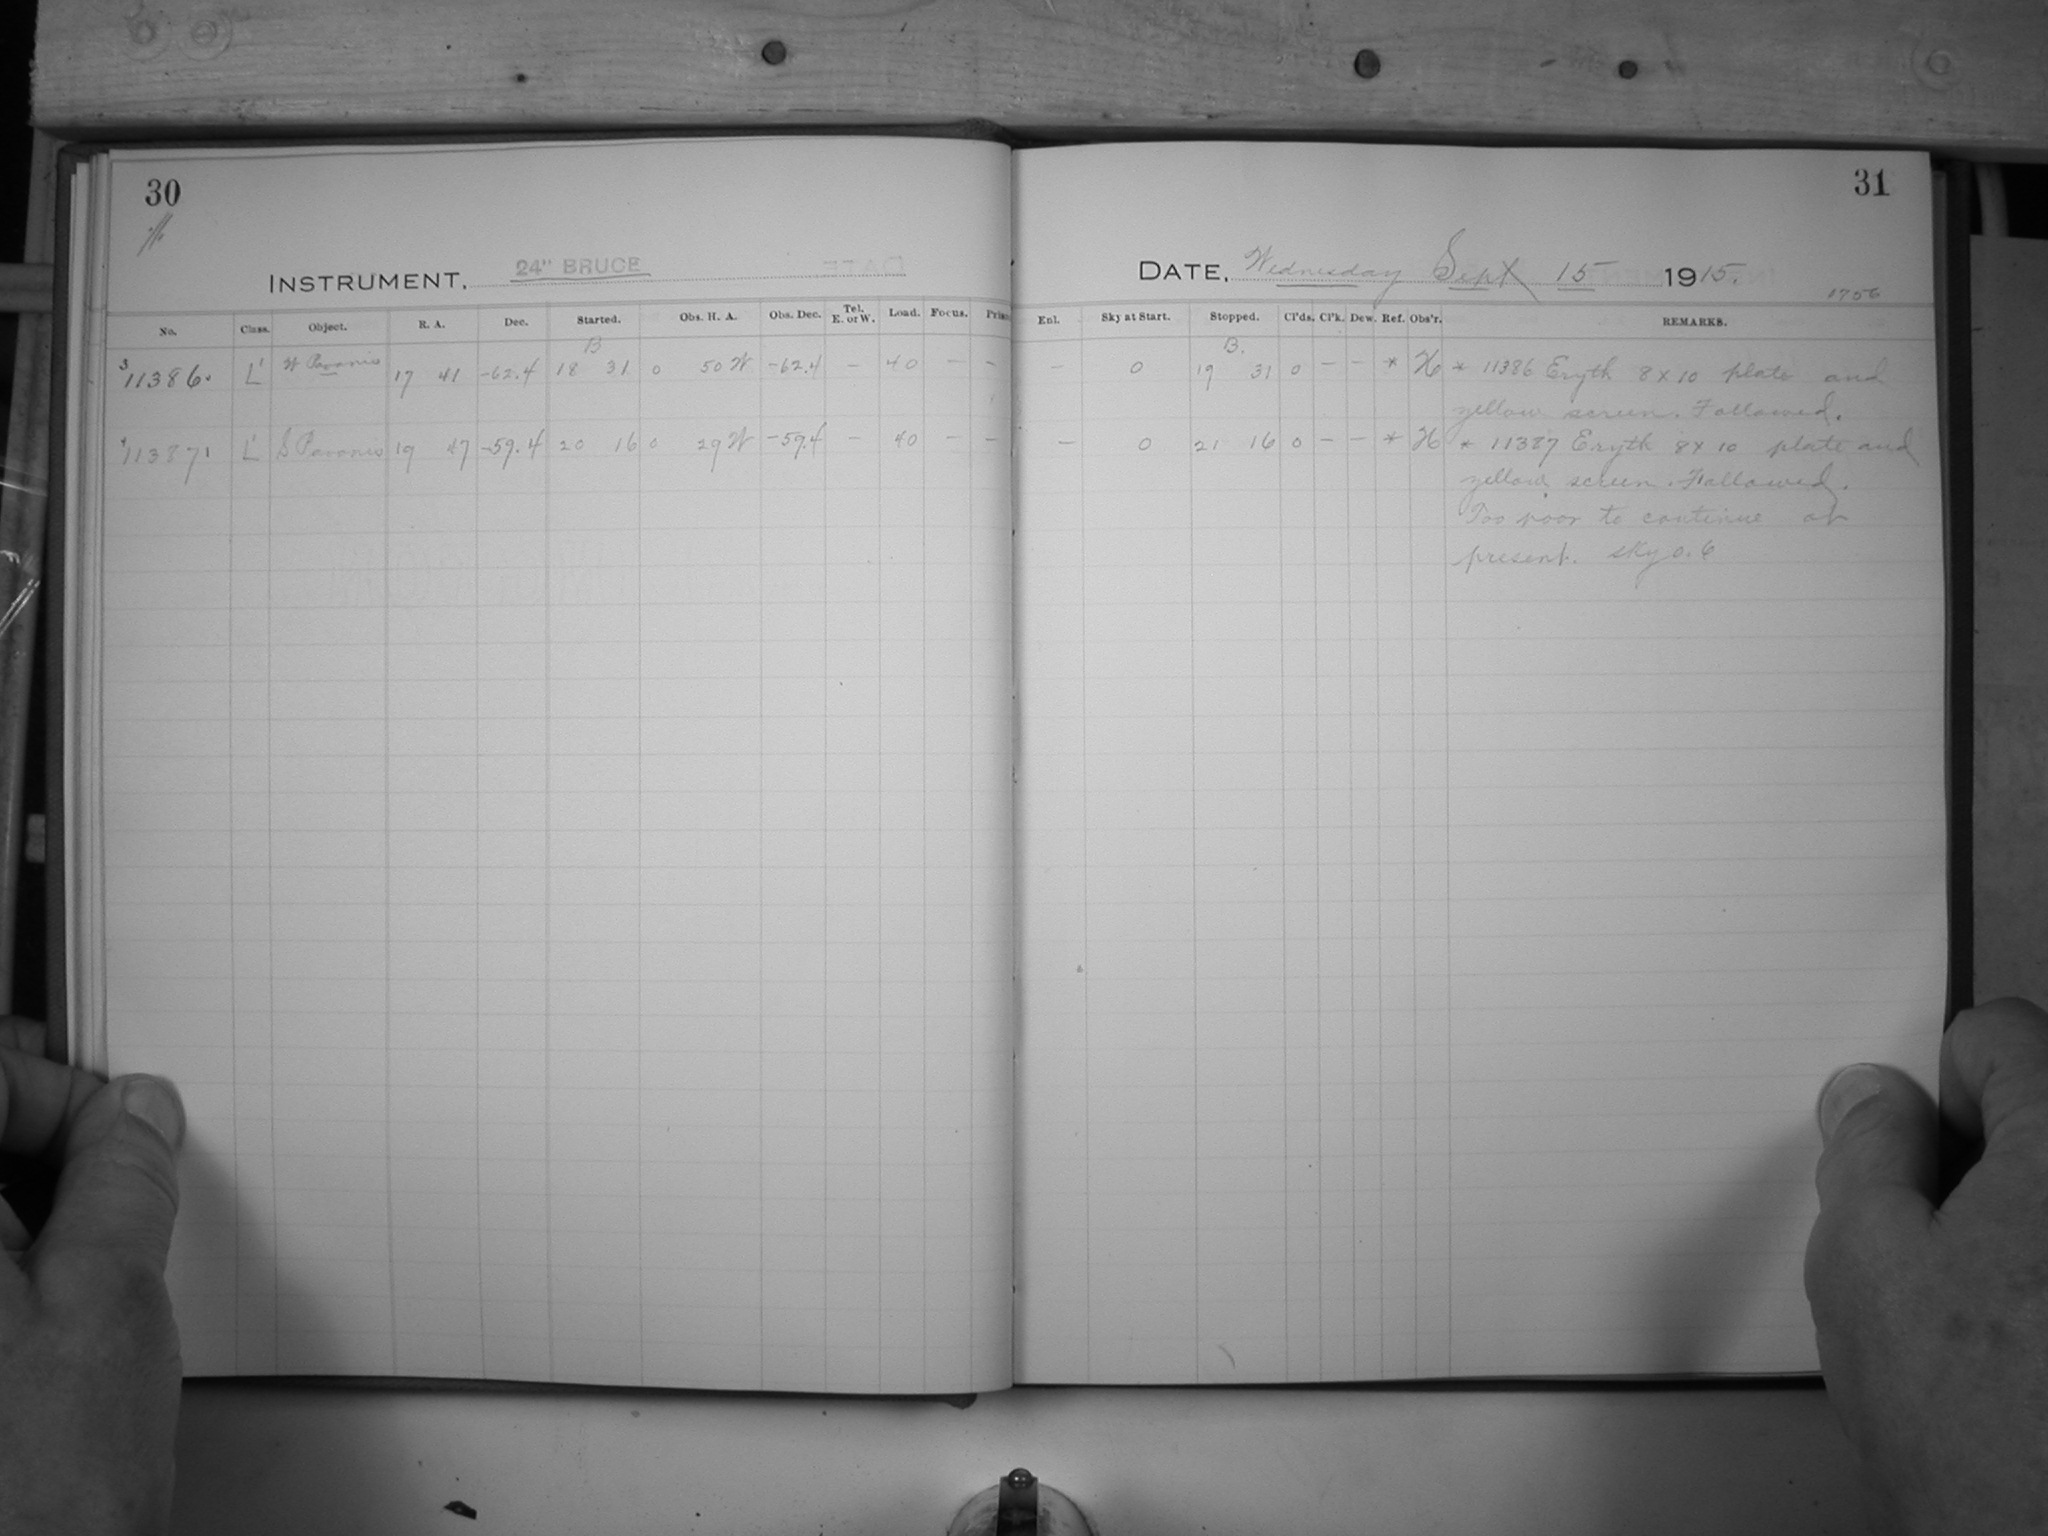 30
INSTRUMENT, 24" BRUCE
No. Class. Object. R. A. Dec. Started. Obs. H. A. Obs. Dec. Tel. E. or W. Load. Focus. Prism
B
3 11386. L' W Pavonis 17 41 -62.4 18 31 0 50 W -62.4 — 40 — —
4 11387 L' S Pavonis 19 47 -59.4 20 16 0 29 W -59.4 — 40 — —
31
DATE, Wednesday Sept 15 1915.
1756
Enl. Sky at Start. Stopped. Cl'ds. Cl'k. Dew. Ref. Obs'r. REMARKS.
B.
— 0 19 31 0 — — * H * 11386 Eryth 8 x 10 plate and
yellow screen. Followed.
— 0 21 16 0 — — * H * 11387 Eryth 8 x 10 plate and
yellow screen. Followed.
Too poor to continue at
present. sky 0.6